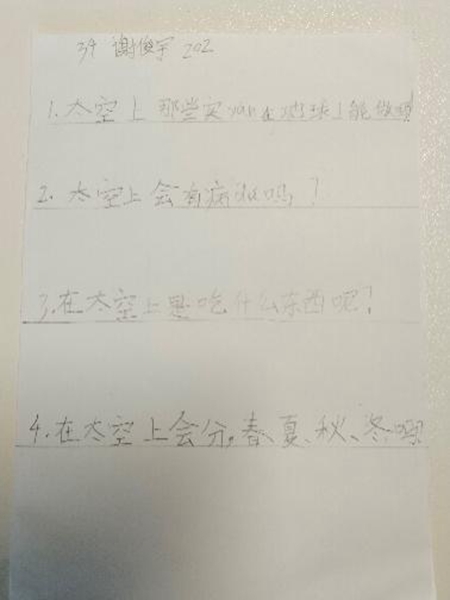 34 谢俊宇 202
1.太空上那些实yan在地球上能做吗
2.太空上会有病du吗?
3.在太空上是吃什么东西呢?
4.在太空上会分,春、夏、秋、冬吗